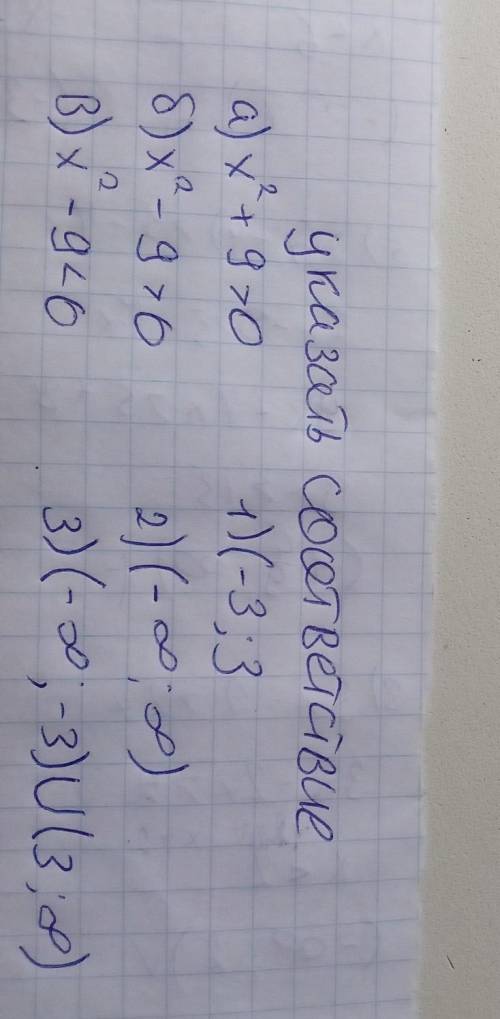 указать соответствие
а) x² + 9 > 0 1) (-3; 3
б) x² - 9 > 0 2) (-∞; ∞)
в) x² - 9 < 0 3) (-∞; -3) ∪ (3; ∞)